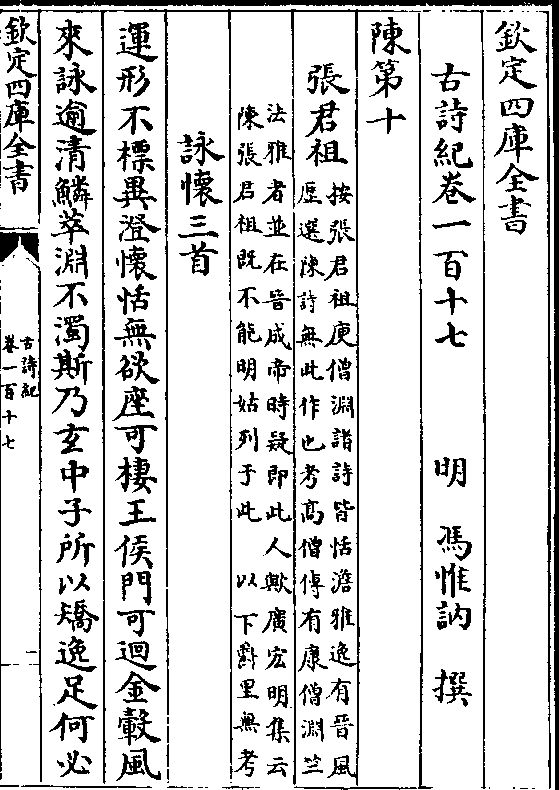 欽定四庫全書
古詩紀卷一百十七 明 馮惟訥 撰
陳第十
張君祖 按張君祖庾僧淵諸詩皆恬澹雅逸有晉風
歴選陳詩無此作也考高僧傳有康僧淵竺
法雅者並在晉成帝時疑即此人歟廣宏明集云
陳張君祖既不能明姑列于此 以下爵里無考
詠懷三首
運形不標異澄懷恬無欲座可棲王侯門可迴金轂風
來詠逾清鱗萃淵不濁斯乃玄中子所以矯逸足何必
欽定四庫全書
古詩紀
卷一百十七
一